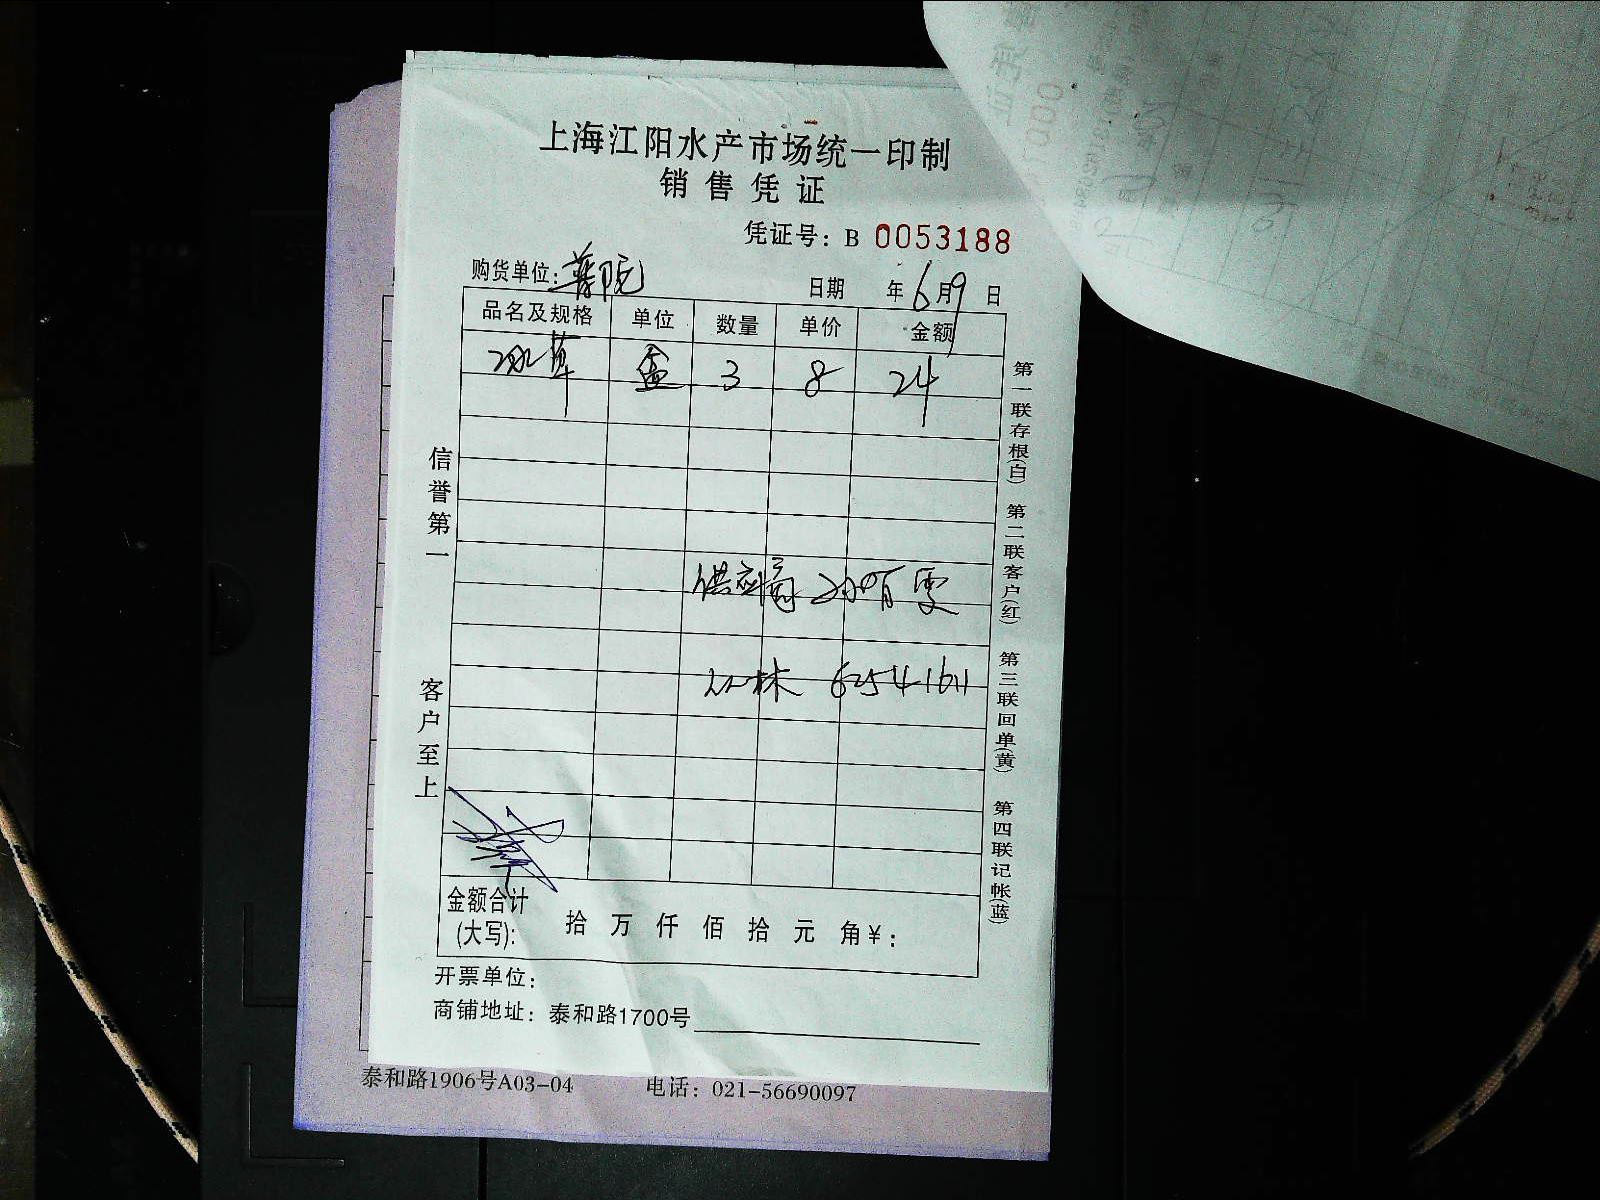 上海江阳水产市场统一印制
销售凭证
凭证号：B 0053188
购货单位：
日期 年 6 月 9 日
品名及规格 单位 数量 单价 金额
冰草 盒 3 8 24
供应商 孙有雯
62541611
信誉第一
客户至上
第一联存根(白) 第二联客户(红) 第三联回单(黄) 第四联记帐(蓝)
金额合计(大写)： 拾 万 仟 佰 拾 元 角 ￥：
开票单位：
商铺地址：泰和路1700号
泰和路1906号A03-04 电话：021-56690097